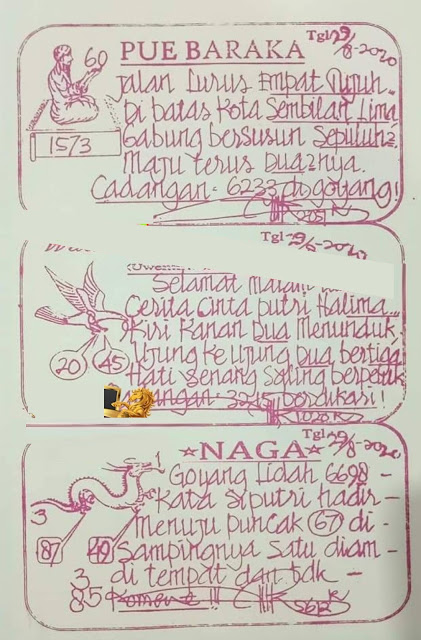 PUE BARAKA
Tgl 29/8-2020
60
1573
Jalan Lurus Empat Tujuh..
Di batas Kota Sembilan Lima
Gabung bersusun Sepuluh2.
Maju terus Dua2nya.
Cadangan = 6233 digoyang!
Tgl 29/8-2020
Selamat Malam
Cerita Cinta putri Halima...
Kiri Kanan Dua Menunduk.
Ujung Ke Ujung Dua bertiga
Hati senang Saling
3245 berdikari!
20 45
NAGA
Tgl 29/8-2020
Goyang Lidah 6698 -
Kata Siputri hadir -
Menuju puncak 67 di -
Sampingnya Satu diam -
di tempat dan tdk -
Komen !!!
1
3
87 49
3
85